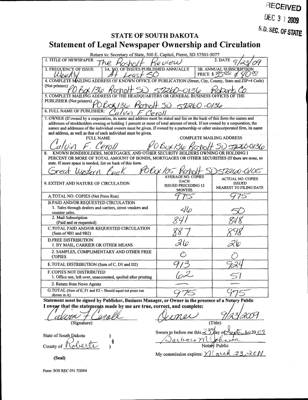 RECEIVED
DEC 31 2009
S.D. SEC. OF STATE
STATE OF SOUTH DAKOTA
Statement of Legal Newspaper Ownership and Circulation
Return to: Secretary of State, 500 E. Capitol, Pierre, SD 57501-5077
1. TITLE OF NEWSPAPER The Rosholt Review 2. DATE 9/23/09
3. FREQUENCY OF ISSUE Weekly 3A. NO. OF ISSUES PUBLISHED ANNUALLY At Least 50 3B. ANNUAL SUBSCRIPTION PRICE
4. COMPLETE MAILING ADDRESS OF KNOWN OFFICE OF PUBLICATION (Street, City, County, State and ZIP+4 Code)
(Not printers) PO Box 136 Rosholt SD 57260-0136 Roberts Co.
5. COMPLETE MAILING ADDRESS OF THE HEADQUARTERS OR GENERAL BUSINESS OFFICES OF THE
PUBLISHER (Not printers) PO Box 136 Rosholt SD 57260-0136
6. FULL NAME OF PUBLISHER: Calvin F. Ceroll
7. OWNER (If owned by a corporation, its name and address must be stated and list on the back of this form the names and
addresses of stockholders owning or holding 1 percent or more of total amount of stock. If not owned by a corporation, the
names and addresses of the individual owners must be given. If owned by a partnership or other unincorporated firm, its name
and address, as well as that of each individual must be given.
FULL NAME COMPLETE MAILING ADDRESS
Calvin F. Ceroll PO Box 136 Rosholt SD 57260-0136
8. KNOWN BONDHOLDERS, MORTGAGEES, AND OTHER SECURITY HOLDERS OWNING OR HOLDING 1
PERCENT OR MORE OF TOTAL AMOUNT OF BONDS, MORTGAGES OR OTHER SECURITIES (If there are none, so
state. If more space is needed, list on back of this form.
Great Western Bank PO Box 105 Rosholt SD 57260-0105
9. EXTENT AND NATURE OF CIRCULATION AVERAGE NO. COPIES EACH ISSUED PRECEDING 12 MONTHS ACTUAL NO. COPIES ISSUED NEAREST TO FILING DATE
A. TOTAL NO. COPIES (Net Press Run) 975 975
B. PAID AND/OR REQUESTED CIRCULATION
1. Sales through dealers and carriers, street vendors and counter sales. 46 50
2. Mail Subscription (Paid and or requested) 841 848
C. TOTAL PAID AND/OR REQUESTED CIRCULATION (Sum of 9B1 and 9B2) 887 898
D. FREE DISTRIBUTION
1. BY MAIL, CARRIER OR OTHER MEANS 26 26
2. SAMPLES, COMPLIMENTARY AND OTHER FREE COPIES 0 0
E. TOTAL DISTRIBUTION (Sum of C, D1 and D2) 913 924
F. COPIES NOT DISTRIBUTED
1. Office use, left over, unaccounted, spoiled after printing 62 51
2. Return from News Agents
G. TOTAL (Sum of E, F1 and F2 - Should equal net press run shown in A) 975 975
Statement must be signed by Publisher, Business Manager, or Owner in the presence of a Notary Public
I swear that the statements made by me are true, correct, and complete:
Calvin F Ceroll Owner 9/23/2009
(Signature) (Title)
State of South Dakota )
County of Roberts )
Sworn to before me this 23 day of Sept 2009
Notary Public
(Seal) My commission expires: March 23, 2011
Form: SOS REC 051 7/2004